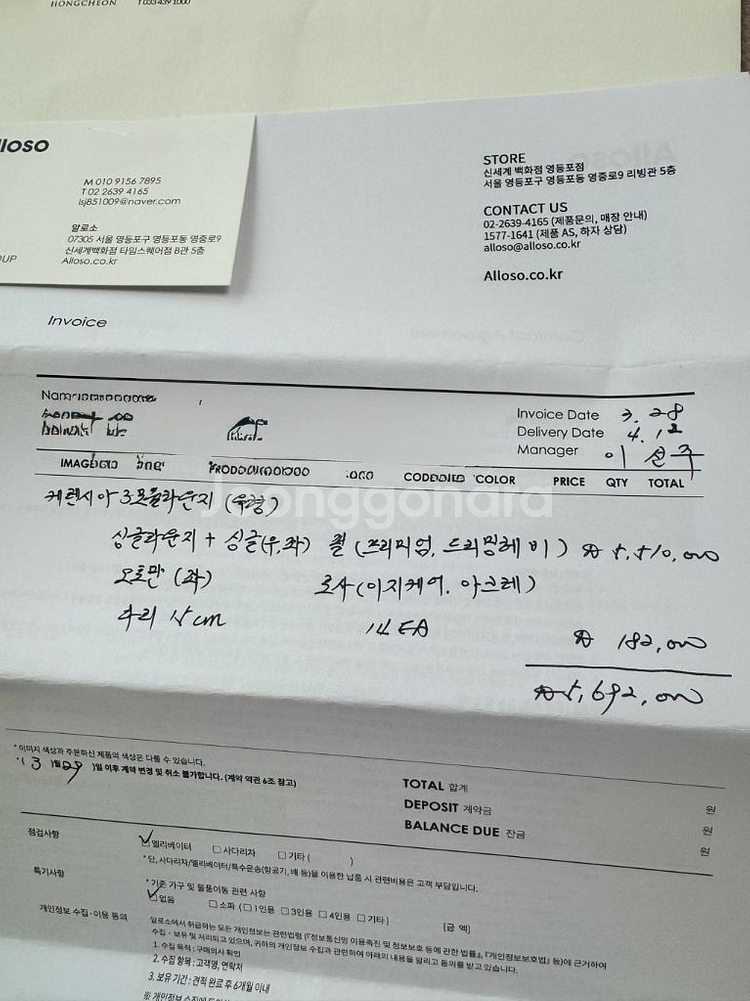 HONGCHEON T 033 439 1000
lloso
M 010 9156 7895
T 02 2639 4165
lsj851009@naver.com
알로소
07305 서울 영등포구 영등포동 영중로9
신세계백화점 타임스퀘어점 B관 5층
Alloso.co.kr
OUP
STORE
신세계 백화점 영등포점
서울 영등포구 영등포동 영중로9 리빙관 5층
CONTACT US
02-2639-4165 (제품문의, 매장 안내)
1577-1641 (제품 AS, 하자 상담)
alloso@alloso.co.kr
Alloso.co.kr
Invoice
Invoice Date 3. 28
Delivery Date 4. 12
Manager 이선주
COLOR PRICE QTY TOTAL
케렌시아 3모듈라운지 (우형)
Joonggonara
싱글라운지 + 싱글(우,좌) 쿨 (프리미엄, 드리밍레비) ₩ 5,510,000
오토만 (좌) 로사 (이지케어. 아크레)
다리 15cm 14 EA ₩ 182,000
₩5,692,000
* 이미지 색상과 주문하신 제품의 색상은 다를 수 있습니다.
( 3 )월( 29 )일 이후 계약 변경 및 취소 불가합니다. (계약 약관 6조 참고)
TOTAL 합계 원
DEPOSIT 계약금 원
BALANCE DUE 잔금 원
점검사항 엘리베이터 사다리차 기타 ( )
* 단, 사다리차/엘리베이터/특수운송(항공기, 배 등)을 이용한 납품 시 관련비용은 고객 부담입니다.
특기사항 * 기존 가구 및 물품이동 관련 사항
없음 소파 ( 1인용 3인용 4인용 기타 ) [금 액]
개인정보 수집·이용 동의 알로소에서 취급하는 모든 개인정보는 관련법령 (『정보통신망 이용촉진 및 정보보호 등에 관한 법률』, 『개인정보보호법』 등)에 근거하여
수집·보유 및 처리되고 있으며, 귀하의 개인정보 수집과 관련하여 아래의 내용을 알리고 동의를 받고 있습니다.
1. 수집 목적 : 구매의사 확인
2. 수집 항목 : 고객명, 연락처
3. 보유 기간 : 견적 완료 후 6개월 이내